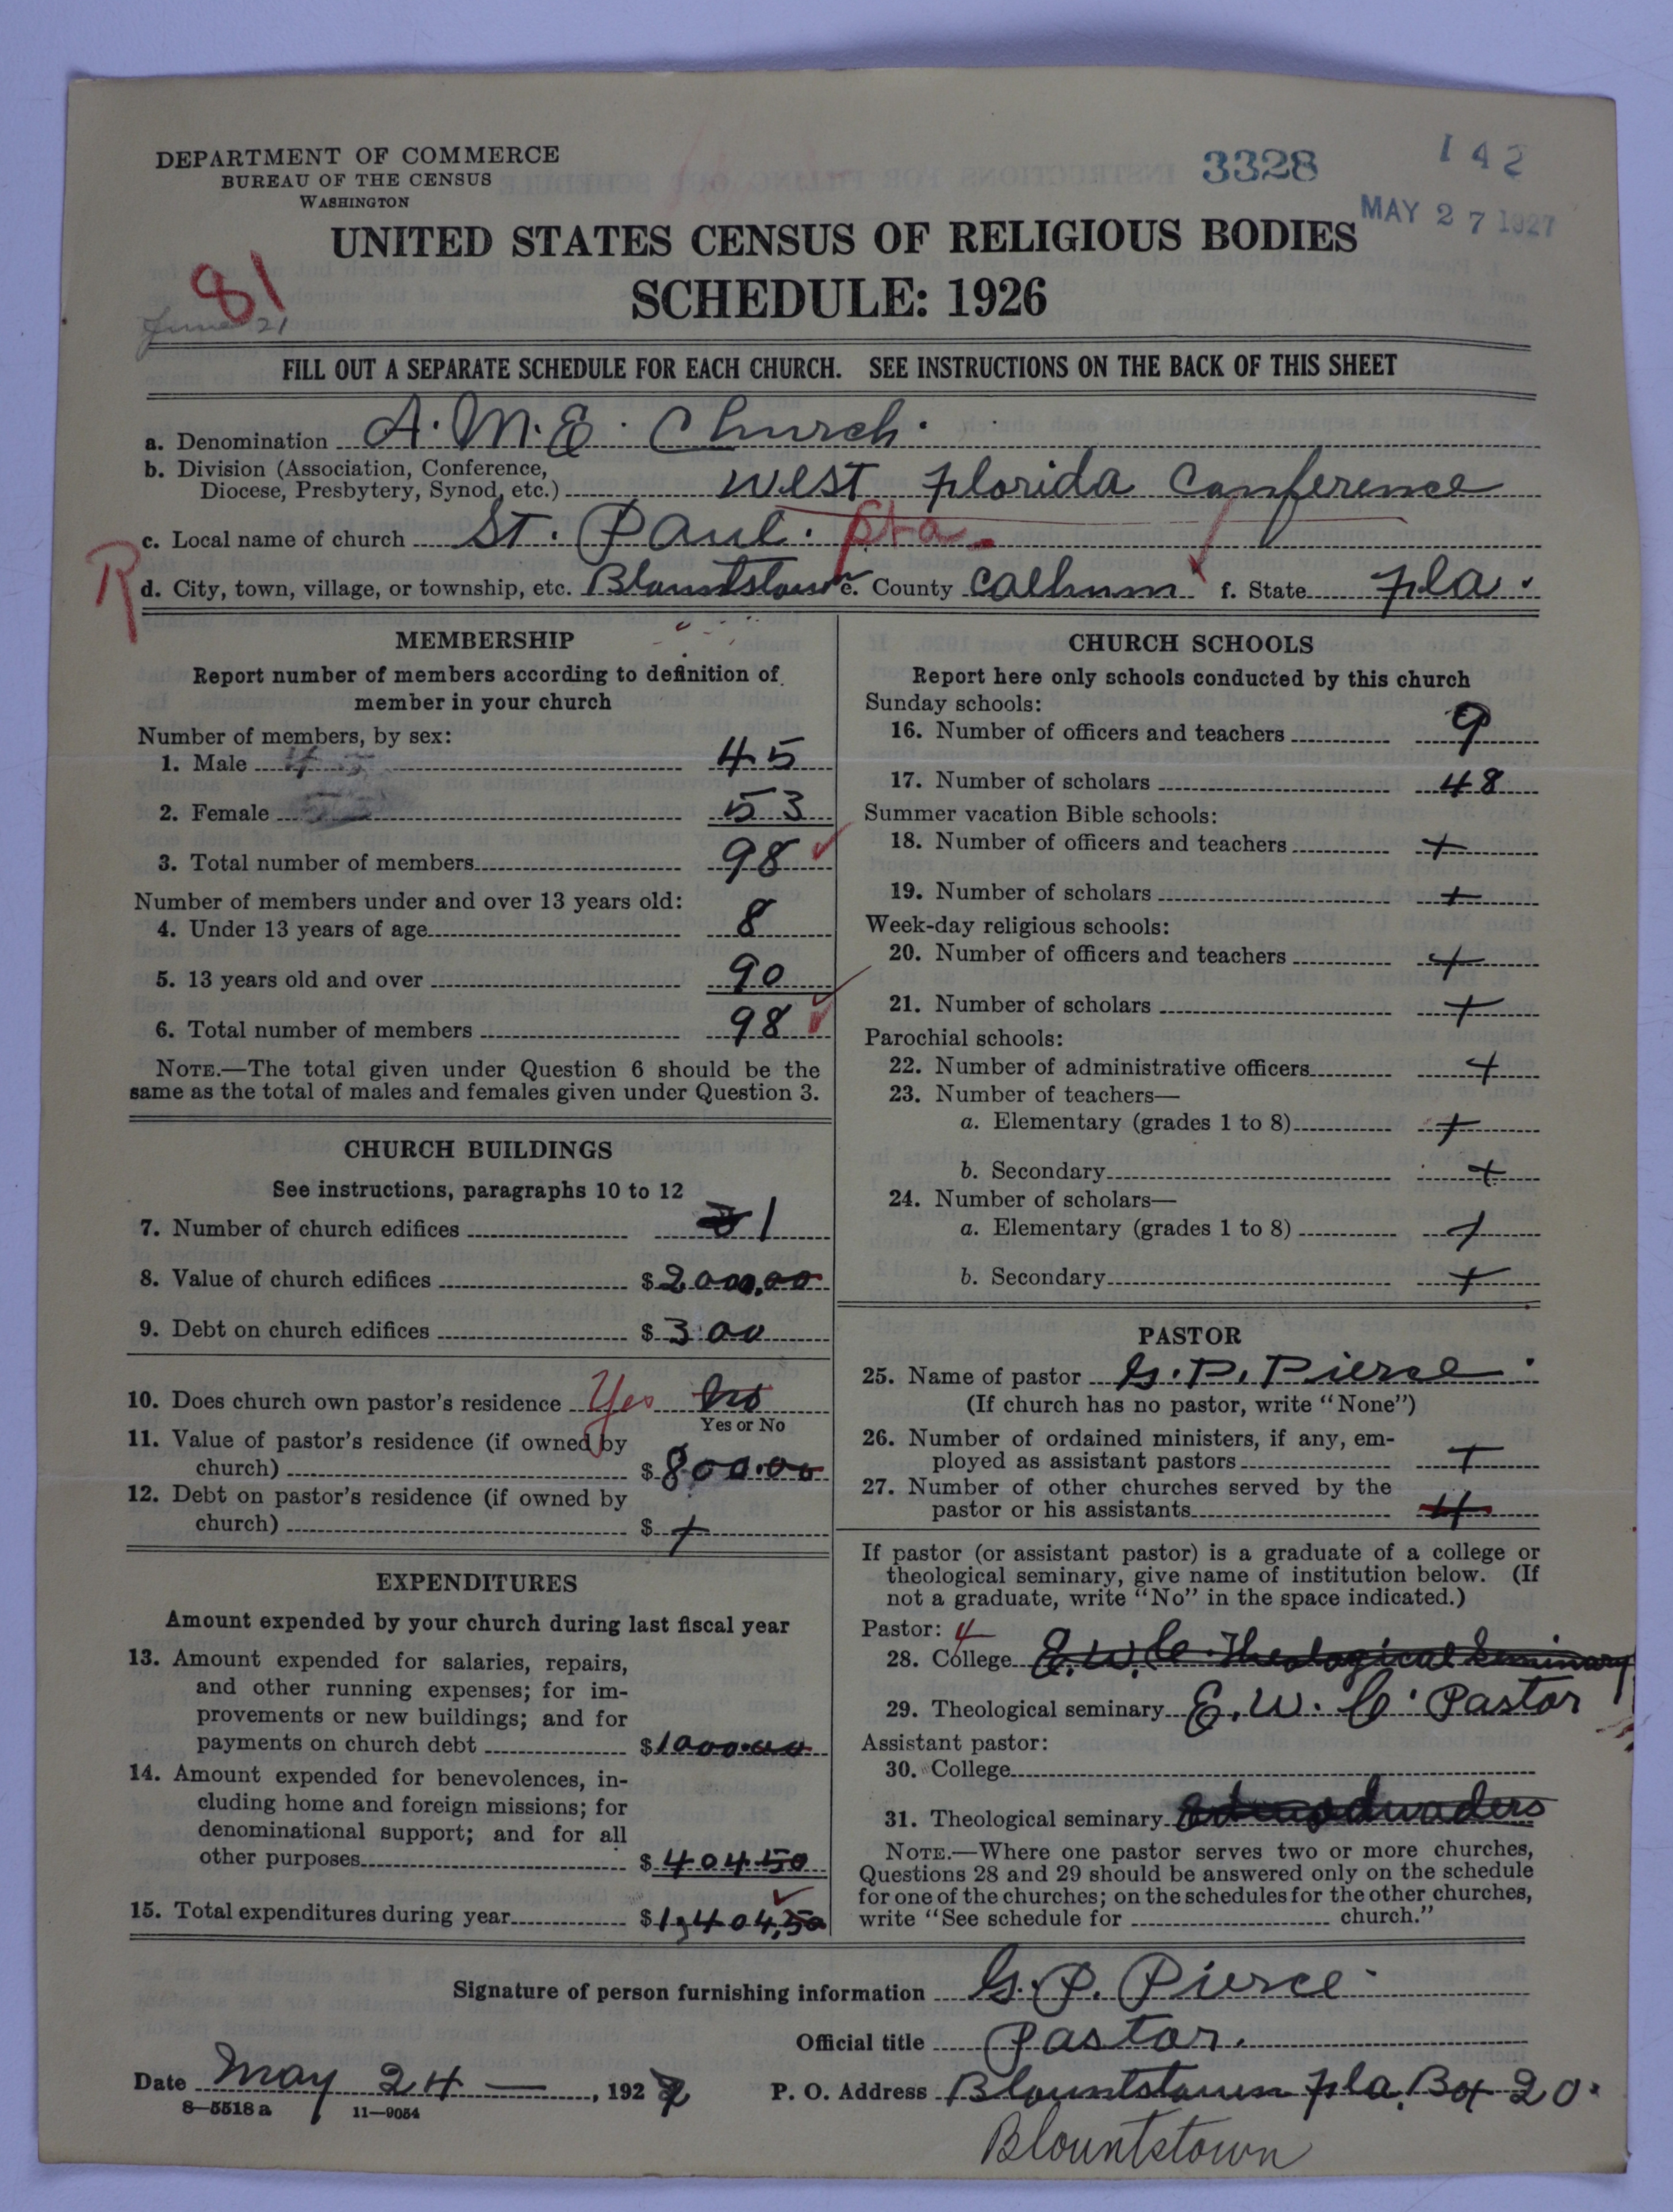 DEPARTMENT OF COMMERCE
BUREAU OF THE CENSUS
WASHINGTON
3328
142
MAY 27 1927
UNITED STATES CENSUS OF RELIGIOUS BODIES
SCHEDULE: 1926
81
June 21
FILL OUT A SEPARATE SCHEDULE FOR EACH CHURCH. SEE INSTRUCTIONS ON THE BACK OF THIS SHEET
a. Denomination A. M. E. Church.
b. Division (Association, Conference,
Diocese, Presbytery, Synod, etc.) West Florida Conference
c. Local name of church St. Paul. Sta.
R
d. City, town, village, or township, etc. Blountstown e. County Calhum f. State Fla.
MEMBERSHIP
Report number of members according to definition of
member in your church
Number of members, by sex:
1. Male 45 45
2. Female 53
3. Total number of members 98
Number of members under and over 13 years old:
4. Under 13 years of age 8
5. 13 years old and over 90
6. Total number of members 98
NOTE.—The total given under Question 6 should be the
same as the total of males and females given under Question 3.
CHURCH BUILDINGS
See instructions, paragraphs 10 to 12
7. Number of church edifices 1
8. Value of church edifices $2000.00
9. Debt on church edifices $300
10. Does church own pastor's residence Yes No
Yes or No
11. Value of pastor's residence (if owned by
church) $800.00
12. Debt on pastor's residence (if owned by
church) $ +
EXPENDITURES
Amount expended by your church during last fiscal year
13. Amount expended for salaries, repairs,
and other running expenses; for im-
provements or new buildings; and for
payments on church debt $1000.00
14. Amount expended for benevolences, in-
cluding home and foreign missions; for
denominational support; and for all
other purposes $404.50
15. Total expenditures during year $1,404.50
CHURCH SCHOOLS
Report here only schools conducted by this church
Sunday schools:
16. Number of officers and teachers 9
17. Number of scholars 48
Summer vacation Bible schools:
18. Number of officers and teachers +
19. Number of scholars +
Week-day religious schools:
20. Number of officers and teachers +
21. Number of scholars +
Parochial schools:
22. Number of administrative officers +
23. Number of teachers—
a. Elementary (grades 1 to 8) +
b. Secondary +
24. Number of scholars—
a. Elementary (grades 1 to 8) +
b. Secondary +
PASTOR
25. Name of pastor G. P. Pierce.
(If church has no pastor, write "None")
26. Number of ordained ministers, if any, em-
ployed as assistant pastors +
27. Number of other churches served by the
pastor or his assistants 4
If pastor (or assistant pastor) is a graduate of a college or
theological seminary, give name of institution below. (If
not a graduate, write "No" in the space indicated.)
Pastor: 4
28. College E. W. C. Theological Seminary
29. Theological seminary E. W. C. Pastor
Assistant pastor:
30. College
31. Theological seminary
NOTE.—Where one pastor serves two or more churches,
Questions 28 and 29 should be answered only on the schedule
for one of the churches; on the schedules for the other churches,
write "See schedule for church."
Signature of person furnishing information G. P. Pierce.
Official title Pastor.
Date May 24 — , 1927
P. O. Address Blountstown Fla. Bx 20.
8—5518 a 11—9054
Blountstown